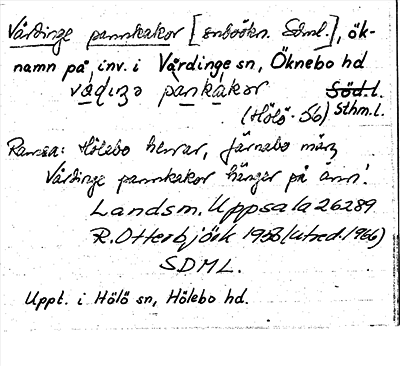 Vårdinge pannkakor [snboökn. Sdml.], ök-
namn på inv. i Vårdinge sn, Öknebo hd
vådiŋə pànkàkor Söd.l.
(Hölö. 56) Sthm.l.
Ramsa: Hölebo herrar, Järnabo
Vårdinge pannkakor hänger på änn!
Landsm. Uppsala 26289
R. Otterbjörk 1958 (utred. 1966)
SDML.
Uppt. i Hölö sn, Hölebo hd.